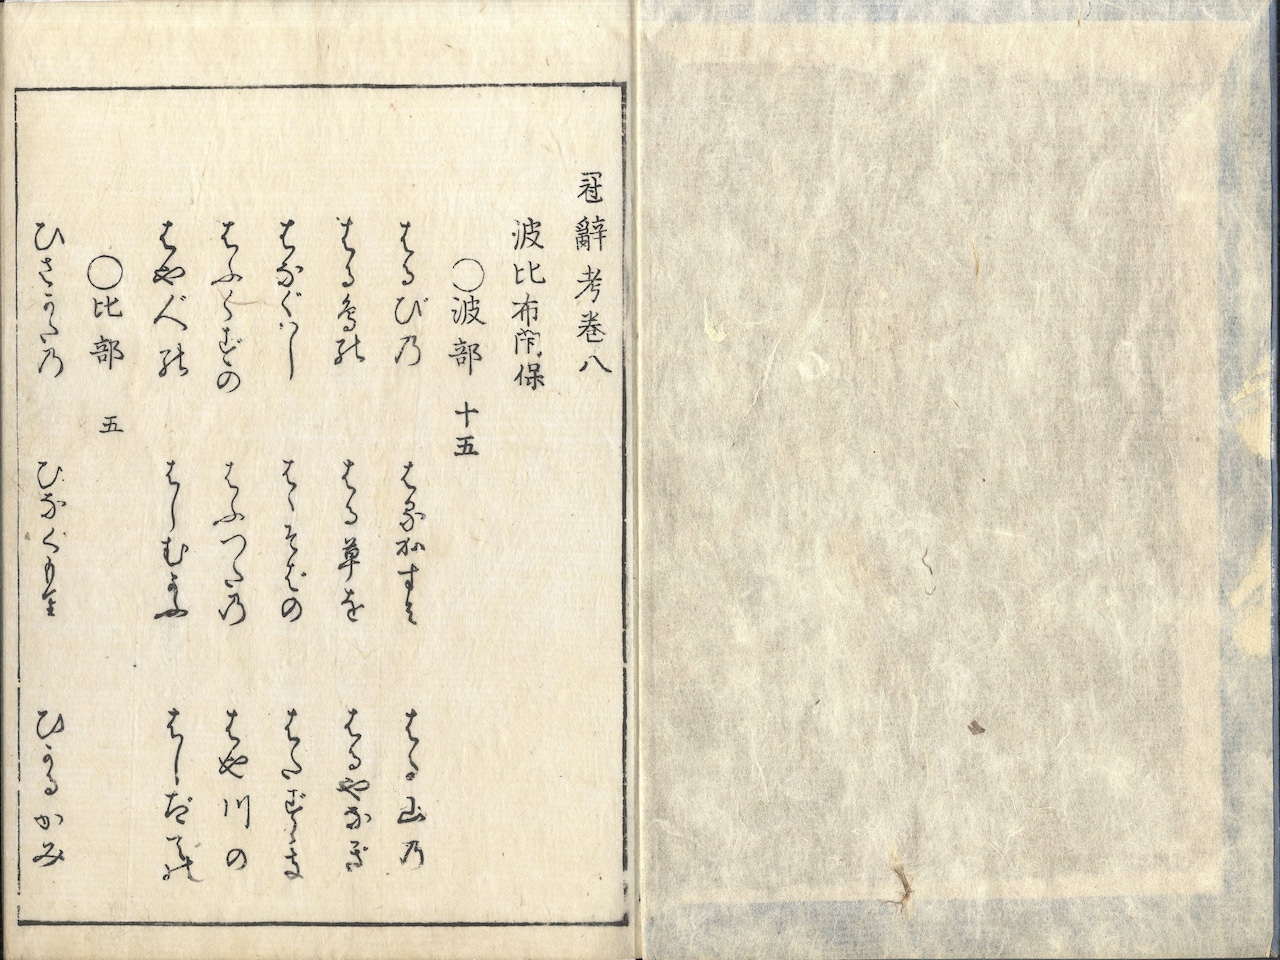 冠辭考卷八
波比布閇保
〇波部 十五
はるび乃 はるがすみ はる山乃
はる鳥能 はる草を はるやなぎ
はなぐはし はゝそばの はたすゝき
はふくずの はふつた乃 はや川の
はや人能 はしむかふ はしだての
〇比部 五
ひさかた乃 ひなくもり ひかるかみ